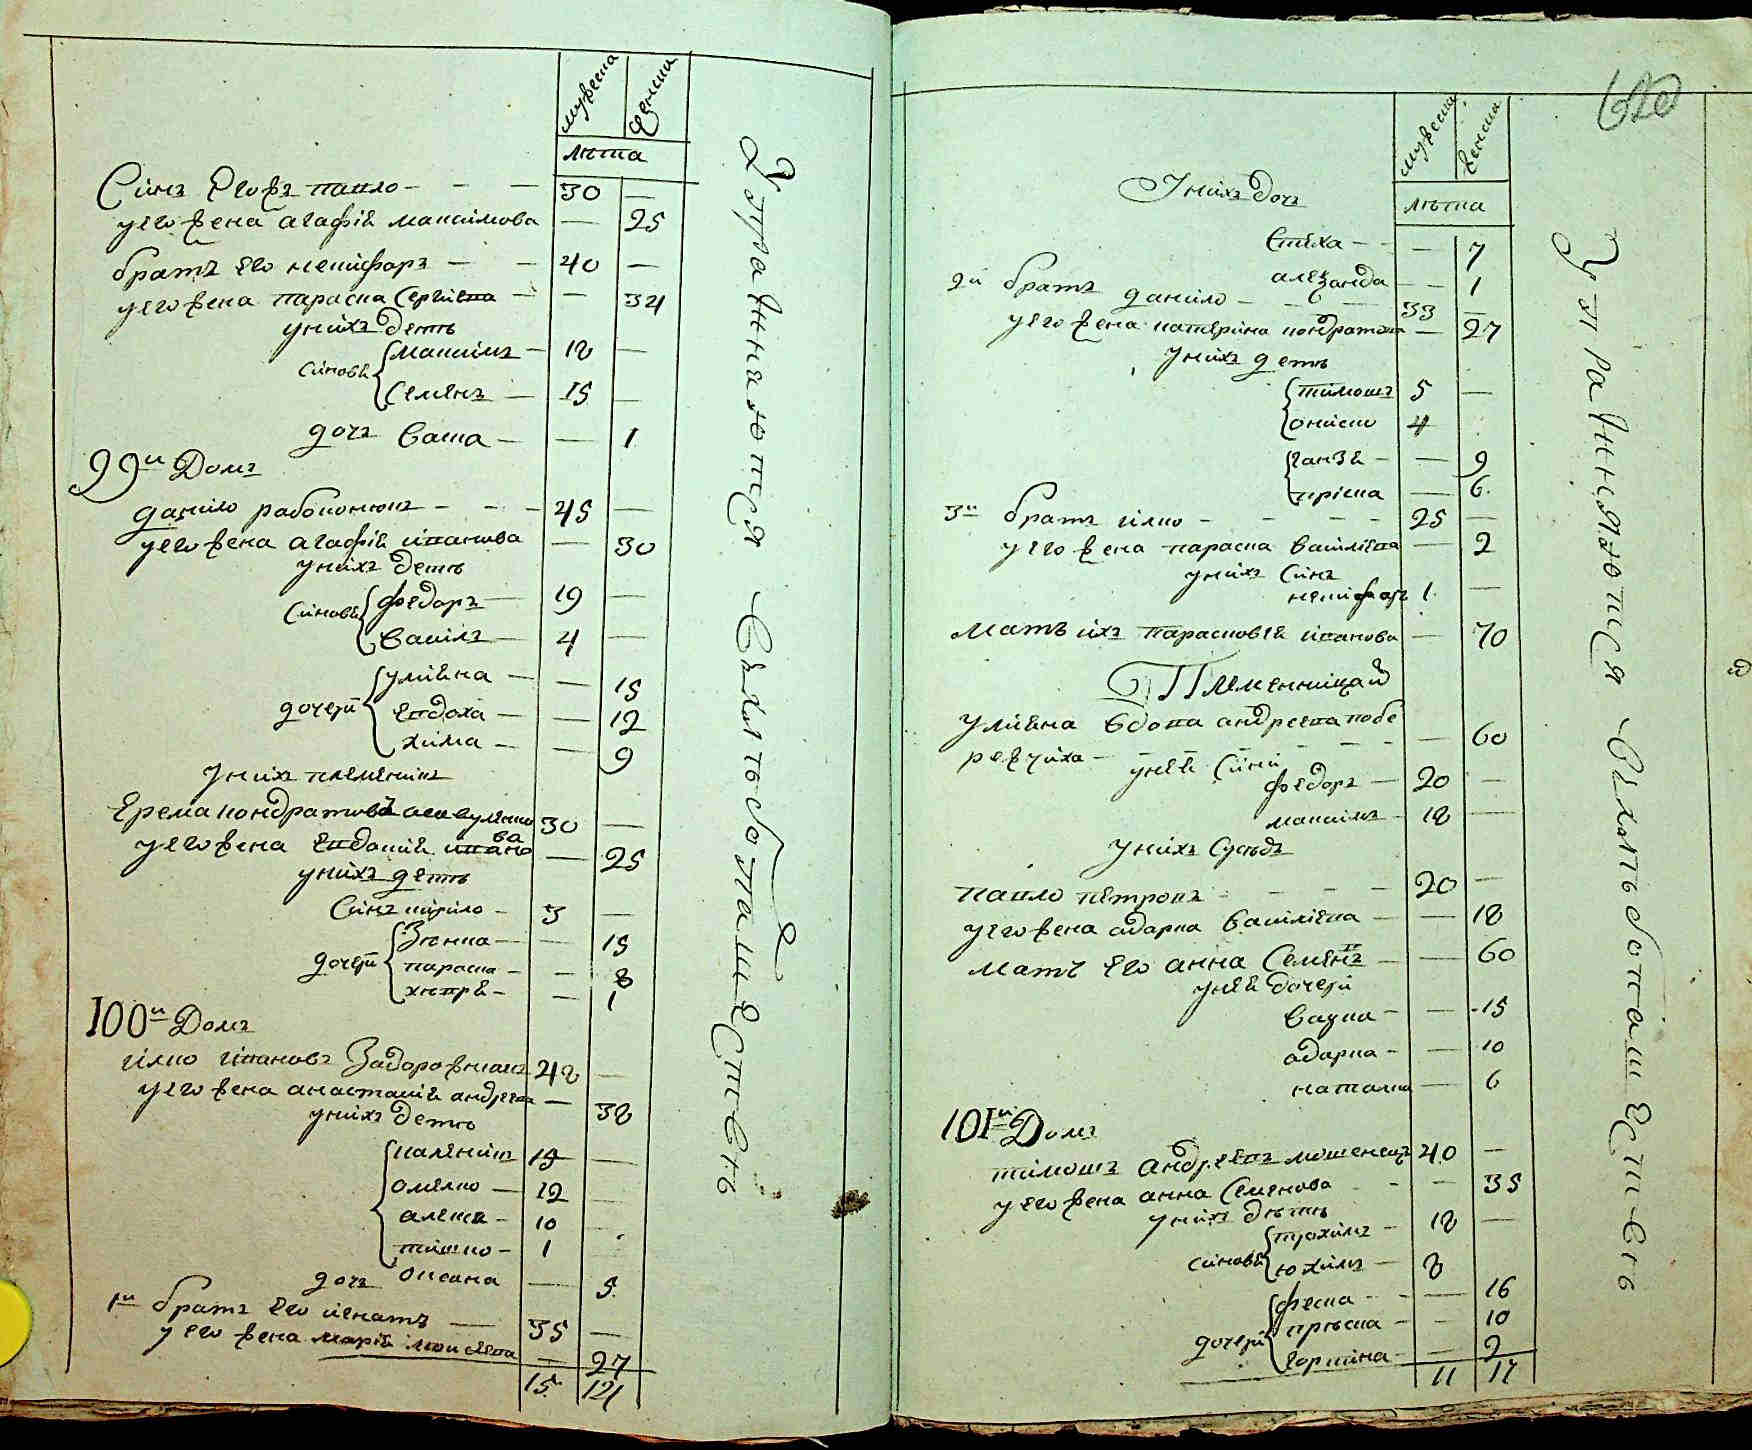 мужеска женска
лѣта
Синъ Его жъ павло - - - 30 —
у его жена агафія максимова — 25
братъ его некифоръ — — 40 —
у его жена параска Сергіева — — 34
у нихъ деты
синовя максимъ — 18 —
Семенъ — 15 —
дочъ Васа — — 1
99й Домъ
данило рабоконюкъ - - - 45 —
у его жена агафія иванова — 30
у нихъ деты
Синовя федоръ — 19 —
Василь — 4 —
дочери улияна — — 15
Евдоха — — 12
хима — — 9
у нихъ племенникъ
Ерема кондратовъ 30 —
у его жена Евдокия иванова — 25
у нихъ деты
Синъ кирило — 3 —
дочери Зѣнка — — 15
параска — — 8
хитря — — 1
100й Домъ
илко ивановъ Задорожнюкъ 48 —
у его жена анастасия андреева — 38
у нихъ деты
каленикъ 15 —
омелко — 12
алекса — 10
тишко — 1
дочъ оксана — 5
1й братъ Его игнатъ — 35 —
у его жена мария моисеева — 27
15 121
Упражняются Вхлѣбопашествень
мужеска женска
лѣта
У нихъ дочъ
Стиха — — 7
александа — — 1
2й братъ данило — — 33 —
у его жена катерина кондратова — 27
у нихъ деты
тимошъ 5 —
ониско 4
ганзя — — 9
приска — 6
3й братъ илко - - - - 25 —
у его жена параска Василіева — 2
у нихъ Синъ
некифоръ 1 —
Мать ихъ парасковия иванова — 70
Племенницай
Улияна Вдова андреева побе
режчиха — — 60
у нея Сини
федоръ — 20 —
максимъ — 18 —
У нихъ Сусѣдъ
павло петровъ - - - 20 —
у его жена одарка Василіева — — 18
Мать Его анна Семен — — 60
у нея дочери
Варка — — 15
одарка — — 10
наталка — 6
101й Домъ
тимошъ андреевъ мошенецъ 40 —
у его жена анна Семенова - - — 35
у нихъ дѣты
Синовя трохимъ — 18 —
юхимъ — 8
дочери феска — — 16
приска — — 10
горпина — — 2
11 17
Упражняются Вхлѣбопашествень